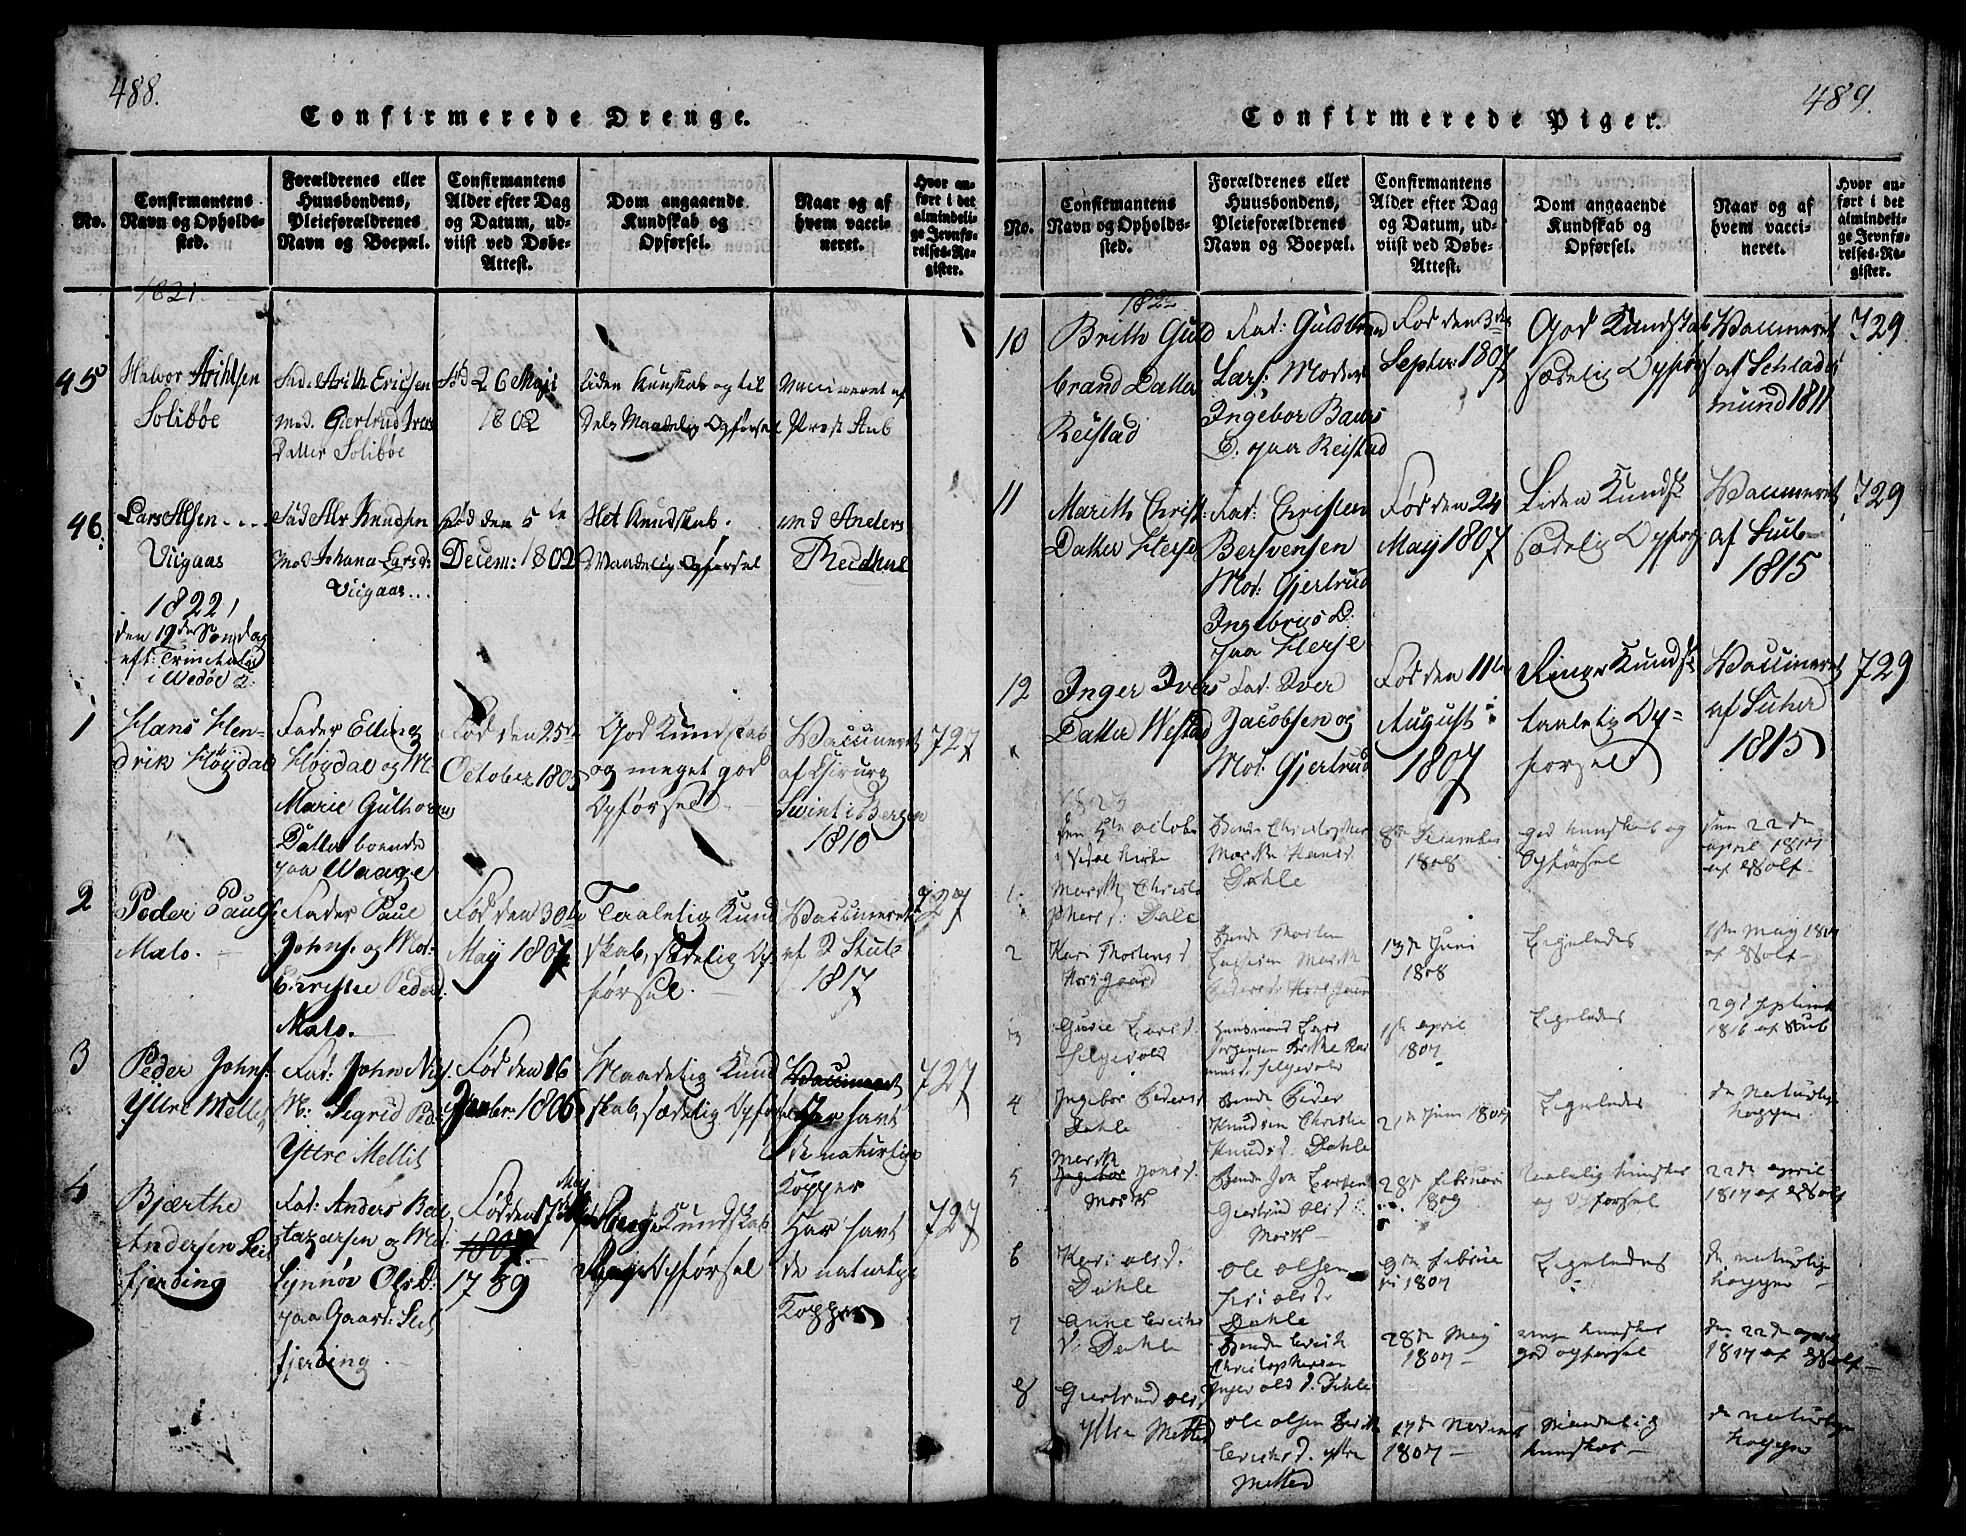 488.
Confirmerede Drenge.
No.
Confirmantens Navn og Opholdssted.
Forældrenes eller Huusbondens, Pleieforældrenes Navn og Boepæl.
Confirmantens Alder efter Dag og Datum, udviist ved Døbe-Attest.
Dom angaaende Kundskab og Opførsel.
Naar og af hvem vaccineret.
Hvor anført i det almindelige Jevnførelses-Register.
1821
45
Halvor Arihtsen
Solibøe
Fad. Arith Ericsen
mod. Giertrud Ivers
Datter Solibøe
Fød 26 Maji
1802
liden Kunskab og til
Dels Maadelig Opførsel
vaccineret af
Præst Aub
46.
Lars Alsen
Viigaas
Fad Alv Knudsen
Mod Johana Larsd:
Viigaas
fød den 5te
Decem: 1802
Slet Kundskab.
Maadelig Opførsel
1822
den 19de Søndag
eft: Trinitatis
i Wedøe
1
Hans Hen-
drik Høydal
Fader Elling
Høydal og M:
Marie Guthorm
Datter boende
paa Waage
Fød den 25de
October 1805
God Kundskab
og meget god
Opførsel
Vaccineret
af Chirurg
i Bergen
1810
727
2
Peder Pauls:
Malo.
Fader Paul
Johns. og Mo:
Christie Peders:
Malo.
Fød den 30te
May 1807
Taalelig Kund
skab, sædelig Op-
førsel
Vaccineret
af J Stub
1817
727
3
Peder Johns:
Yttre Mellis
Fad: John Nils:
M: Sigrid Ped:
Yttre Mellis
Fød den 16
Januar: 1806
Maadelig Kund
skab, sædelig Opførsel
Vaccineret
Har havt
de naturlige
Kopper
727
4
Bjærthe
Andersen Sei
fjerding
Fad: Anders Bal
tazarsen og Mo:
Synnøv OlsD.
paa Gaard: Sei
fjerding
Fød den 17de May
1807
1789
Ringe Kundskab
Ringe Opførsel
Har havt
de naturlige
Kopper
727
489.
Confirmerede Piger.
No.
Confirmantens Navn og Opholdssted.
Forældrenes eller Huusbondens, Pleieforældrenes Navn og Boepæl.
Confirmantens Alder efter Dag og Datum, udviist ved Døbe-Attest.
Dom angaaende Kundskab og Opførsel.
Naar og af hvem vaccineret.
Hvor anført i det almindelige Jevnførelses-Register.
1822
10
Brith Guld
brand Datter
Reistad
Fad: Guldbrand
Lars: Moder
Ingebor Baars
D. paa Reistad
Fød den 3die
Septber 1807
God Kundskab
Sædelig Opførs
Vaccineret
af Schlades
mund 1811
729
11
Marith Christ:
Datter Herse
Fad: Christen
Bersvensen
Mo: Gjertrud
Ingebrigs D.
paa Herse
Fød den 24
May 1807
Liden Kundsk
Sædelig Opførs
Vaccineret
af Stub
1815
729
12
Inger Ivers
Datter Westad
Fad: Iver
Jacobsen og
Mo: Gjertrud
Fød den 11te
August
1807
Ringe Kundsk
taalelig Op-
førsel
Vaccineret
af Suhr
1815
729
1823
den 5te octobr
i Vedøe Kirke
1.
Marith Christo
phers d: Dale
Bonde Christopher
Marithe Hansd
Dahle
8de December
1808
god kundskab og
Opførsel
den 22de
april 1817
af Wolf
2
Kari Mortens d
Horsgaard
Bonde Morten
Marith
13de Juni
1808
Ligeledes
af Wolf
3
Gurie Lars d.
Helgevold
Huusmand Lars
Jørgensen Brithe Ras
mus d. Helgevold
1ste april
1807
Ligeledes
29 Septemb
1816 af Stub
4
Ingebor Peders d
Dahle
Bonde Peder
Knudsen Christie
Knuds d. Dahle
21de Juni 1807
Ligeledes
de Naturlige
kopper
5
Marith
Ingebor Jons d.
Mork
Bonde Jon Larsen
Giertrud Ols d.
Mork
28de Februari
1809
Taalelig kundskab
og Opførsel
22de april
1817 af Wolf
6
Kari Ols d:
Dahle
Ole Olsen
Dahle
9de Februa
ri 1807
Ligeledes
de naturlige
kopper
7
Anne Erichs
d. Dahle
Bonde Erich
Christophersen
Inge Ols d. Dahle
28de May
1807
ringe kundskab
god opførsel
den 22de april
1817 af Wolf
8
Giertrud Ols d
yttre Metted
Ole Olsen Berith
Erichs d. yttre
Metted
17de Novemb
1807
Maadelig
kundskab
de naturlige
kopper